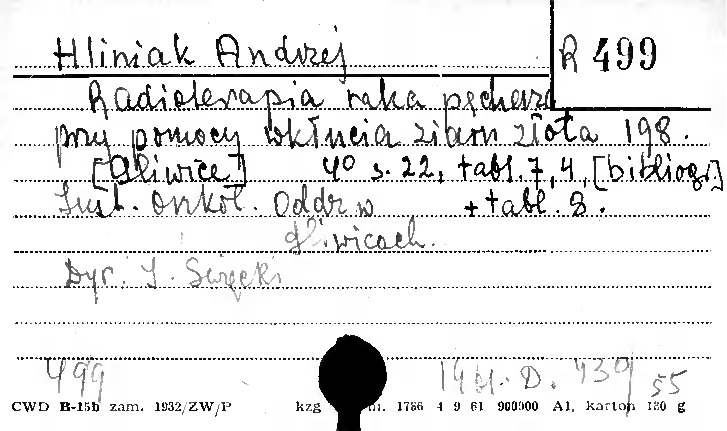 Hliniak Andrzej
R 499
Radioterapia raka pęcherza
przy pomocy wkłucia ziarn złota 198.
[Gliwice] 4º s. 22, tabl. 7, 4, [bibliogr.]
Inst. Onkol. Oddz. w + tabl. 8.
Gliwicach.
Dyr. J. Świecki
499
1961. D. 439/55
CWD B-15b zam. 1932/ZW/P kzg m. 1786 4 9 61 900000 A1, karton 180 g